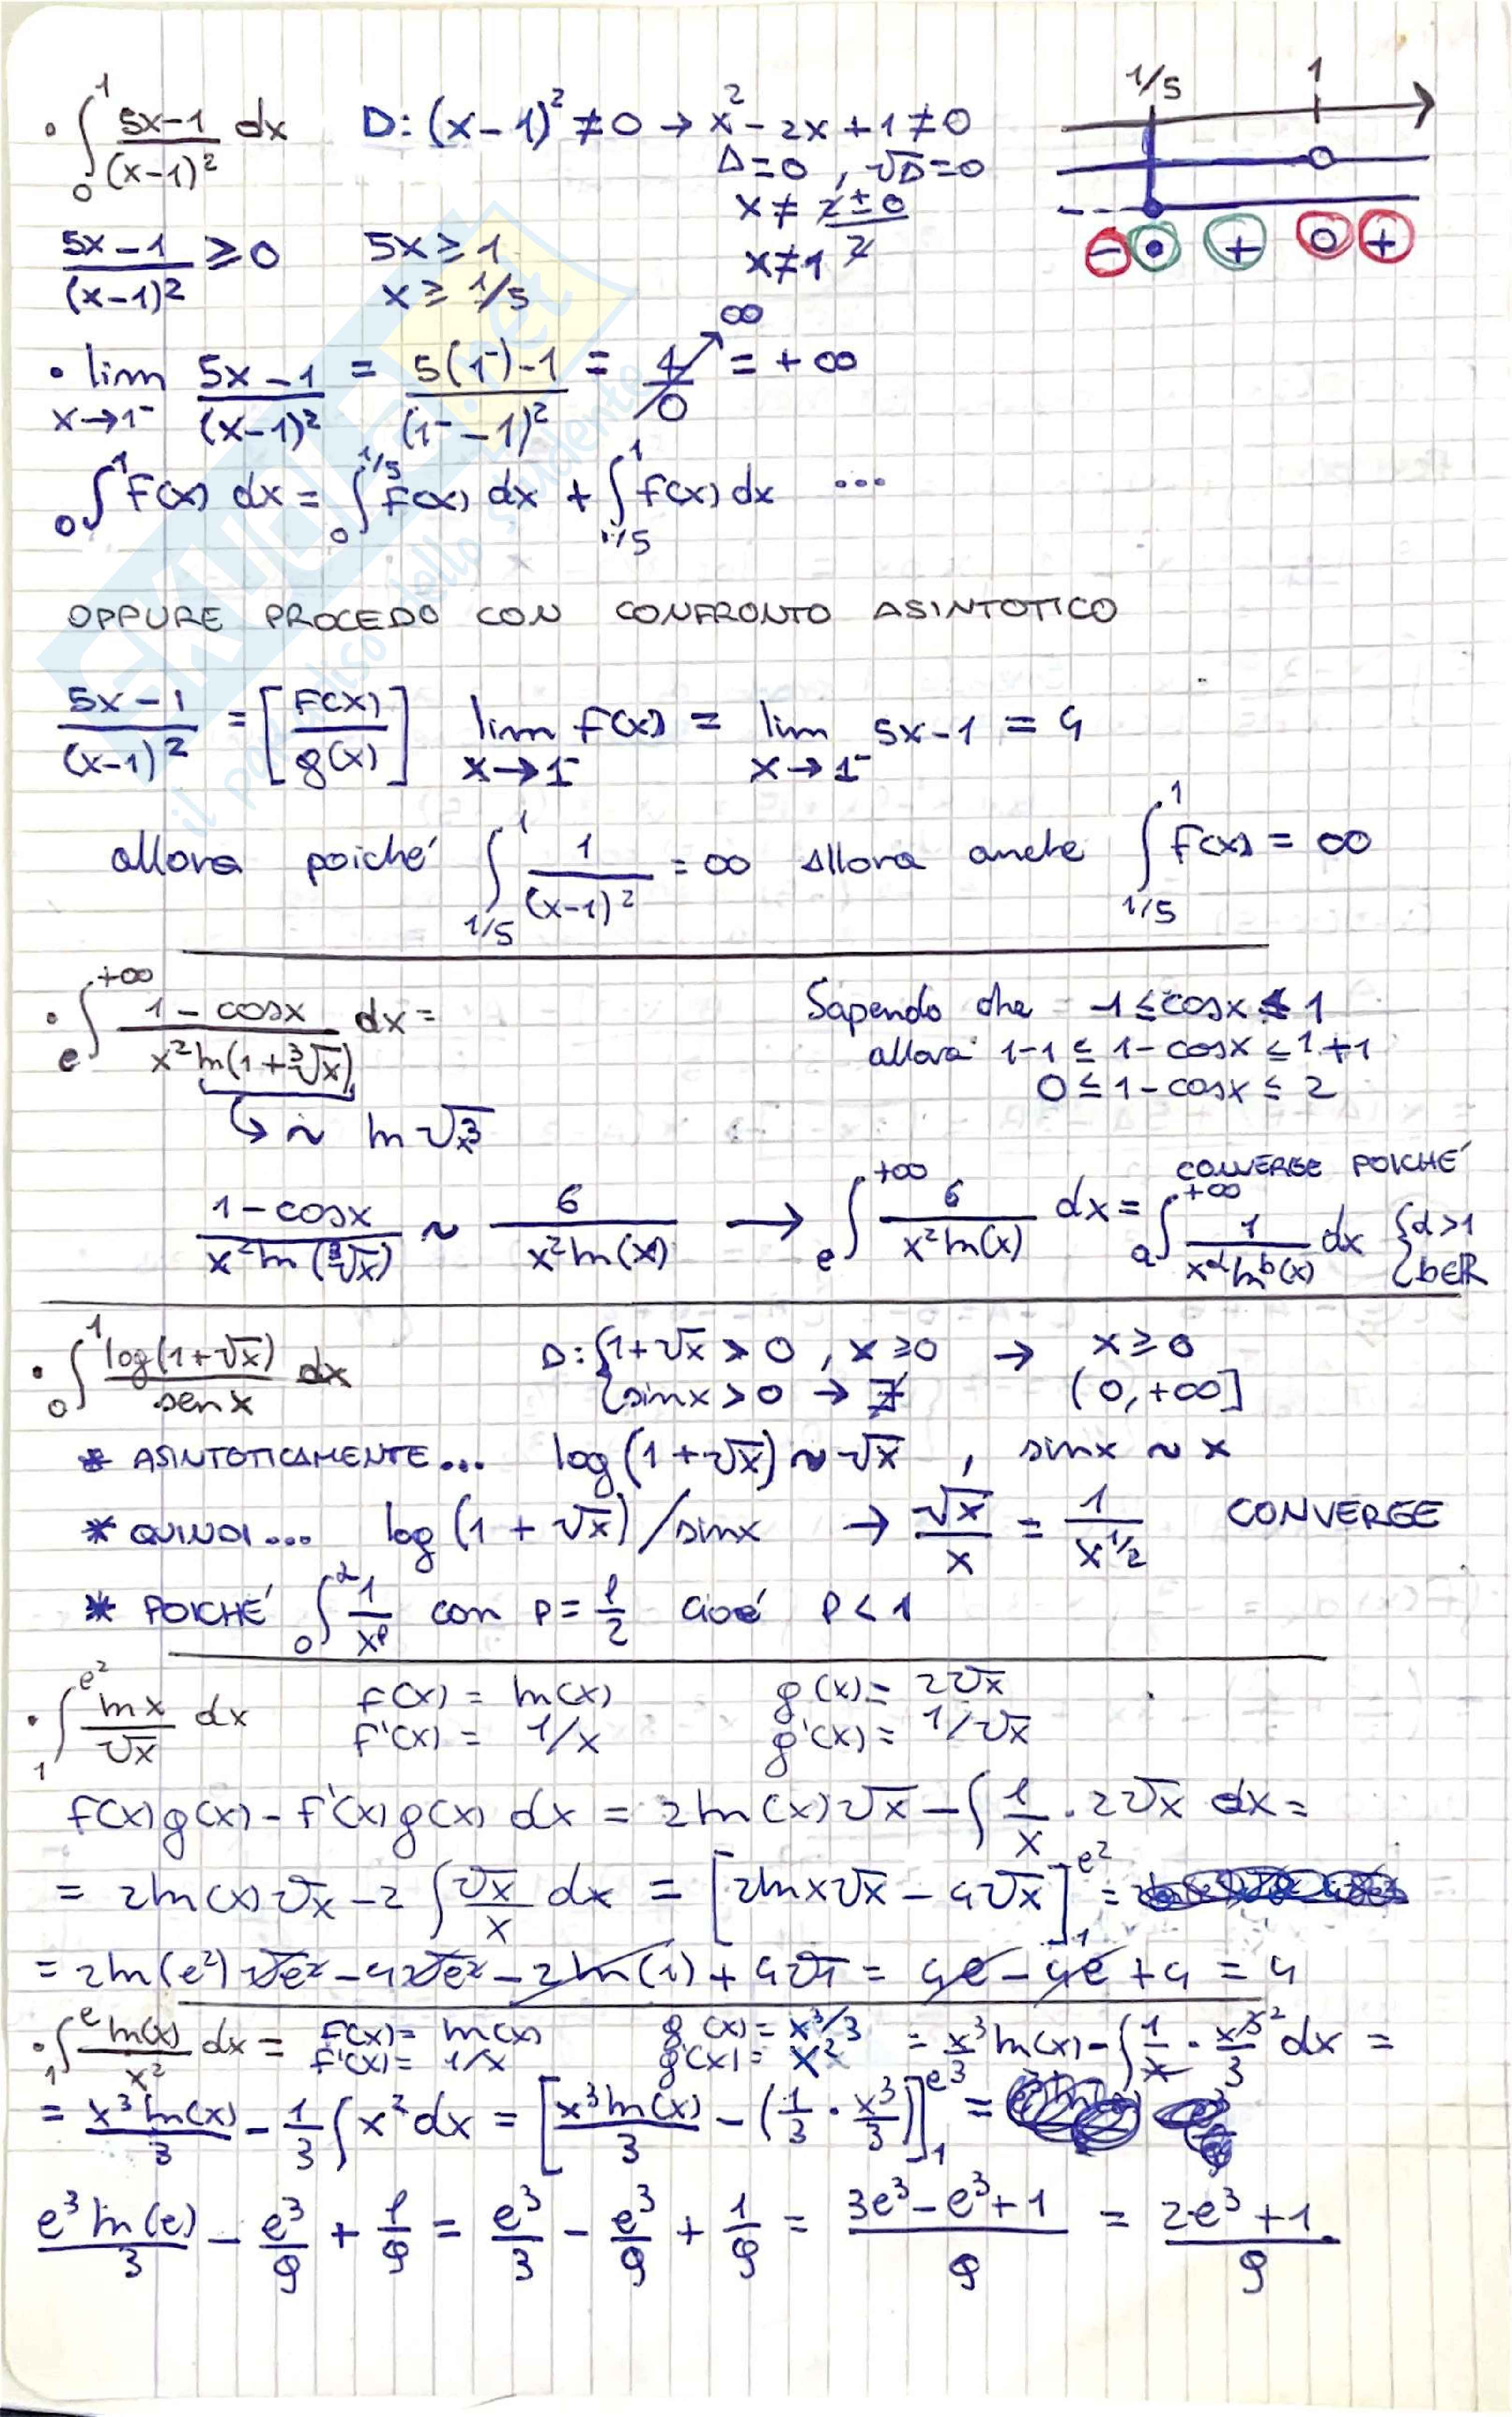 • ∫₀¹ (5x-1)/(x-1)² dx D: (x-1)² ≠ 0 → x² - 2x + 1 ≠ 0
1/5 1
Δ=0 , √Δ=0
x ≠ (2±0)/2
(5x-1)/(x-1)² ≥ 0 5x ≥ 1 x ≠ 1
x ≥ 1/5
- • + o +
• lim x→1⁻ (5x-1)/(x-1)² = (5(1⁻)-1)/(1⁻-1)² = 4/0 ↗∞ = +∞
∫₀¹ f(x) dx = ∫₀^(1/5) f(x) dx + ∫_(1/5)^1 f(x) dx ...
OPPURE PROCEDO CON CONFRONTO ASINTOTICO
(5x-1)/(x-1)² = [f(x)/g(x)] lim x→1⁻ f(x) = lim x→1⁻ 5x-1 = 4
allora poiché ∫_(1/5)^1 1/(x-1)² = ∞ allora anche ∫_(1/5)^1 f(x) = ∞
• ∫_e^(+∞) (1-cosx)/(x² ln(1+∛x)) dx = Sapendo che -1 ≤ cosx ≤ 1
allora 1-1 ≤ 1-cosx ≤ 1+1
0 ≤ 1-cosx ≤ 2
↳ ~ ln √x³
CONVERGE POICHÉ
(1-cosx)/(x² ln(∛x)) ~ 6/(x² ln(x)) → ∫_e^(+∞) 6/(x² ln(x)) dx = ∫_a^(+∞) 1/(x^α ln^b(x)) dx {α>1 {b∈R
• ∫₀¹ log(1+√x)/senx dx D: {1+√x > 0 , x ≥ 0 → x ≥ 0
{sinx > 0 → ∄ (0,+∞]
* ASINTOTICAMENTE... log(1+√x) ~ √x , sinx ~ x
* QUINDI... log(1+√x)/sinx → √x/x = 1/x^(1/2) CONVERGE
* POICHÉ ∫₀^a 1/x^p con p = 1/2 cioè p < 1
• ∫₁^(e²) lnx/√x dx f(x) = ln(x) g(x) = 2√x
f'(x) = 1/x g'(x) = 1/√x
f(x)g(x) - f'(x)g(x) dx = 2ln(x)√x - ∫ 1/x · 2√x dx =
= 2ln(x)√x - 2∫ √x/x dx = [2lnx√x - 4√x]₁^(e²) =
= 2ln(e²)√e² - 4√e² - 2ln(1) + 4√1 = 4e - 4e + 4 = 4
• ∫₁^e ln(x)/x² dx = f(x) = ln(x) g(x) = x³/3 = x³/3 ln(x) - ∫ 1/x · x³/3 ² dx =
f'(x) = 1/x g'(x) = x²
= x³ln(x)/3 - 1/3 ∫ x² dx = [x³ln(x)/3 - (1/3 · x³/3)]₁^(e³) =
e³ln(e)/3 - e³/9 + 1/9 = e³/3 - e³/9 + 1/9 = (3e³ - e³ + 1)/9 = (2e³ + 1)/9
SKUOLA.net
il paradiso dello studente